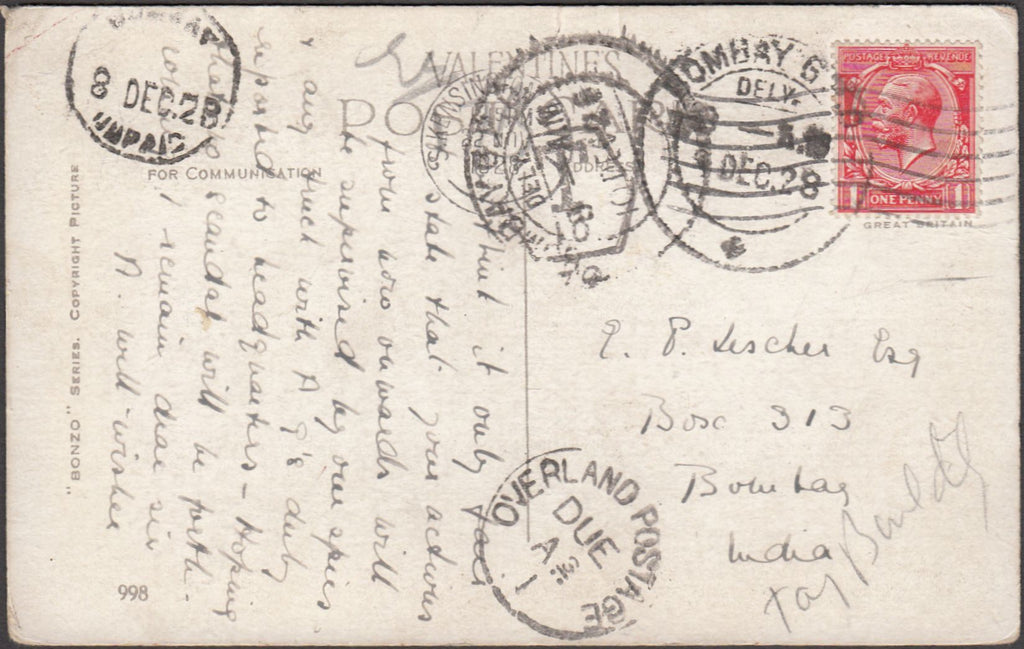 VALENTINES
POST CARD
FOR COMMUNICATION
ADDRESS
"BONZO" SERIES. COPYRIGHT PICTURE
998
BOMBAY
8 DEC.28
UNPAID
S. KENSINGTON
BOMBAY G
DELY.
8 DEC.28
POSTAGE REVENUE
ONE PENNY
GREAT BRITAIN
I think it only fair
to state that your actions
from now onwards will
be supervised by our spies
& any truck with A P's duly
reported to headquarters - Hoping
that no scandal will be forth-
coming I remain dear sir
A. well-wisher
E. P. Lescher Esq
Box 313
Bombay
India
OVERLAND POSTAGE
DUE
As.
1